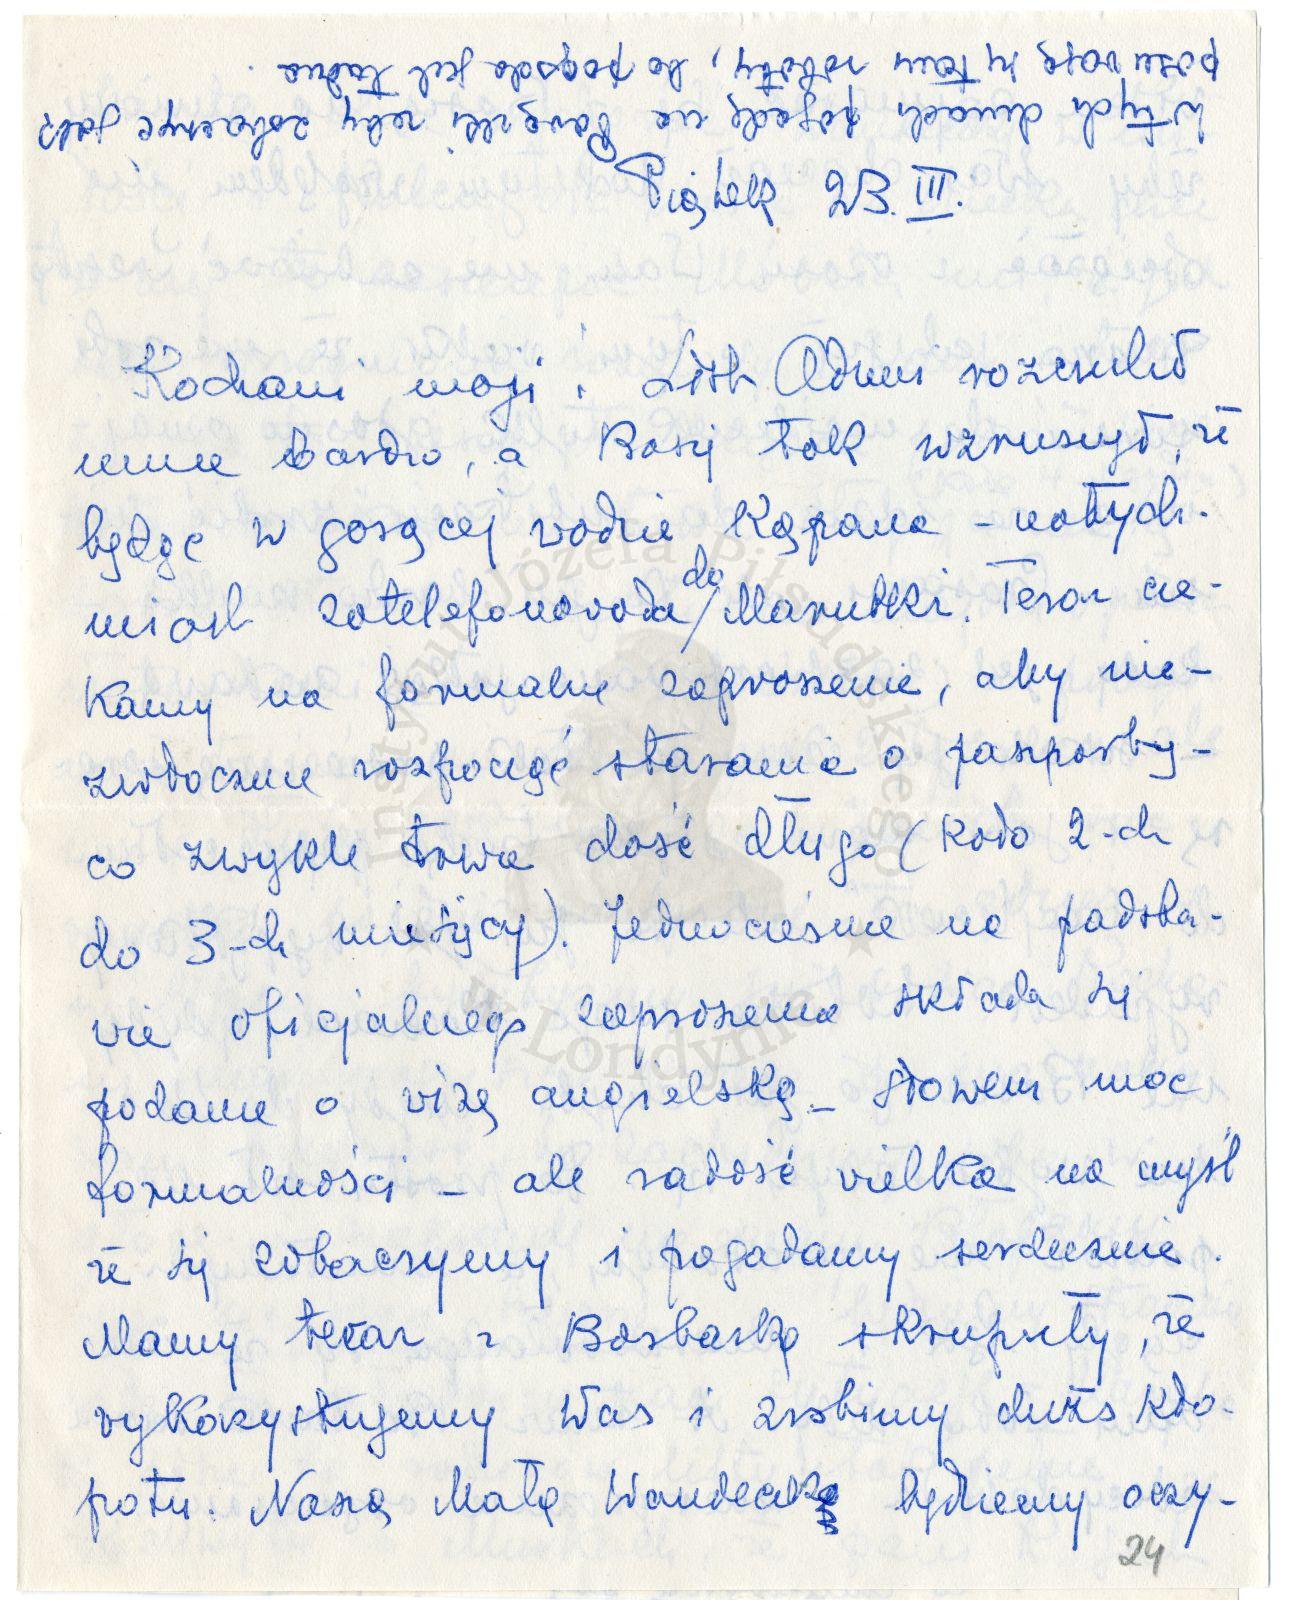 W tych dniach pojadę na Powązki żeby zobaczyć jak
posuwają się tam roboty, bo pogoda jest ładna.
Piątek 23. III.
Kochani moji. List Aduni rozczulił
mnie bardzo, a Basię tak wzruszył, że
będąc w gorącej wodzie kąpana – natych-
miast zatelefonowała do Marutki. Teraz cze-
kamy na formalne zaproszenie, aby nie-
zwłocznie rozpocząć starania o paszporty –
co zwykle trwa dość długo (koło 2-ch
do 3-ch miesięcy). Jednocześnie na podsta-
wie oficjalnego zaproszenia składa się
podanie o wizę angielską – słowem moc
formalności – ale radość wielka na myśl
że się zobaczymy i pogadamy serdecznie.
Mamy teraz z Barbarką skrupuły, że
wykorzystujemy Was i zrobimy dużo kło-
potu. Naszą Małą Wandeczkę będziemy oczy-
24
Instytut Józefa Piłsudskiego
w Londynie